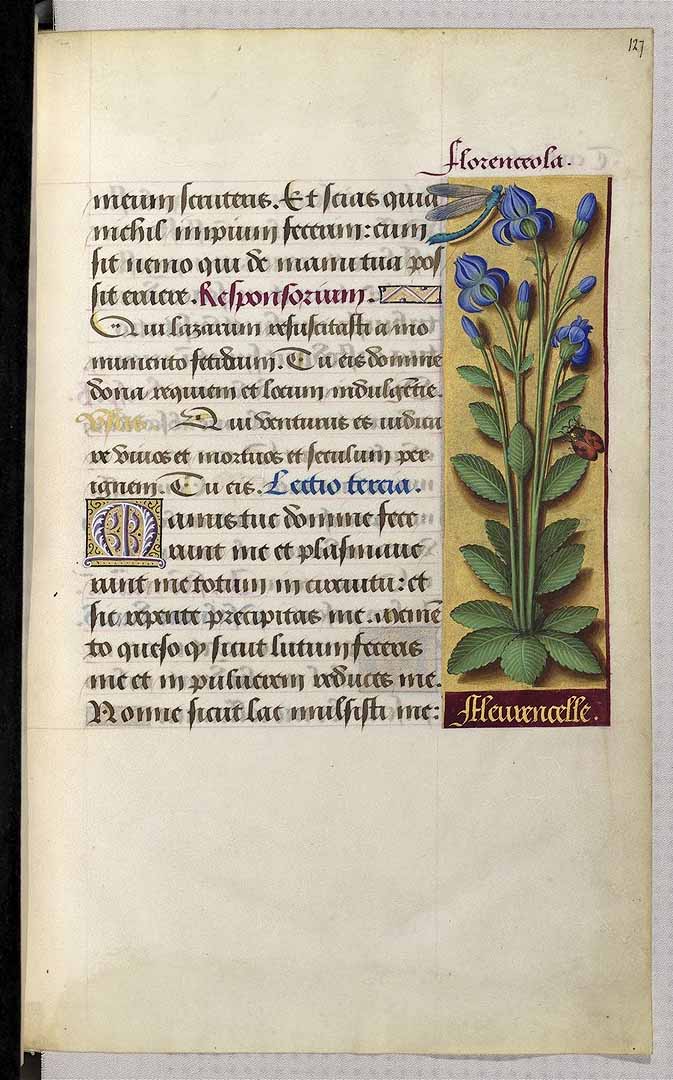 127
Florenceola.
meum scruteris. Et scias quia
nichil impium fecerim: cum
sit nemo qui de manu tua pos
sit eruere. Responsorium.
Qui lazarum resuscitasti a mo
numento fetidum. Tu eis domine
dona requiem et locum indulgētie.
Vsus Qui venturus es iudica
re vivos et mortuos et seculum per
ignem. Tu eis. Lectio tercia.
Manus tue domine fece
runt me et plasmave
runt me totum in circuitu: et
sic repente precipitas me. memē
to queso q sicut lutum feceris
me et in pulverem reduces me.
Nonne sicut lac mulsisti me:
Fleurencelle.